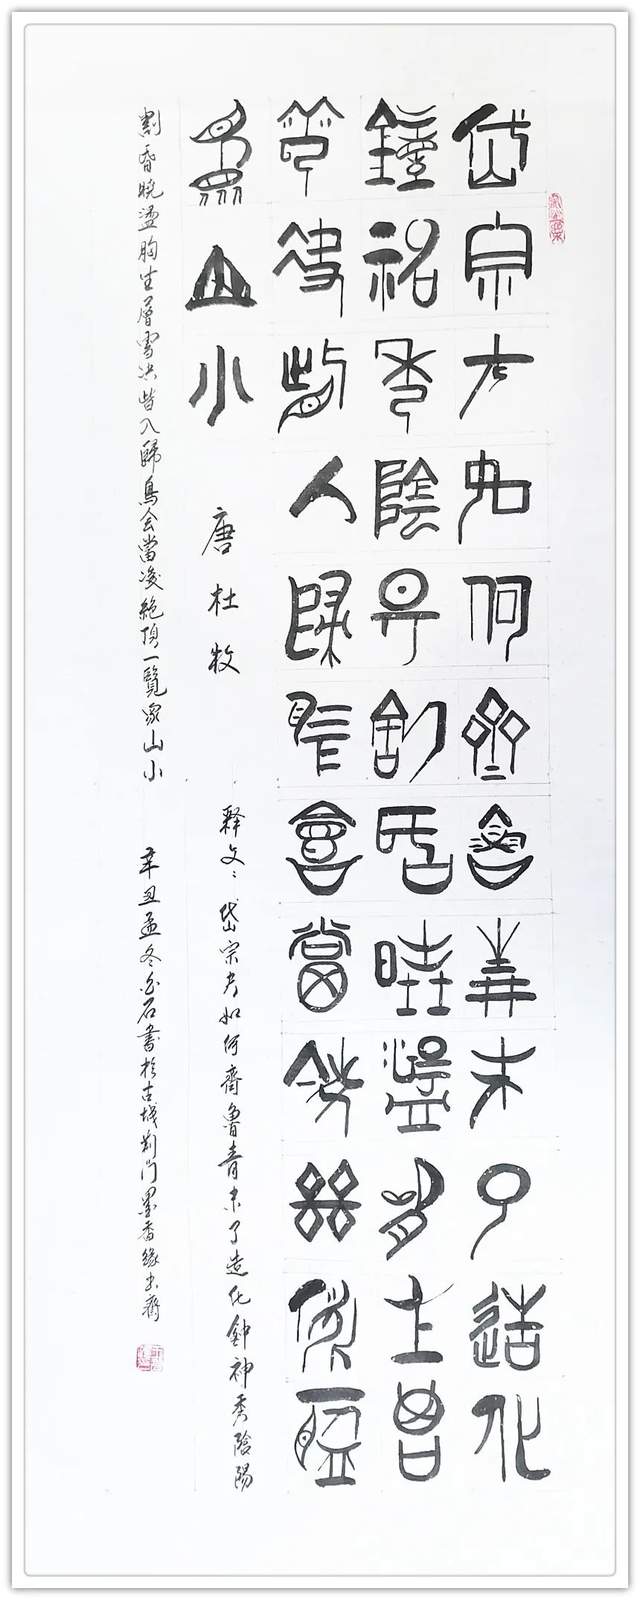 岱宗夫如何齊魯青未了造化
鐘神秀陰陽割昏曉盪胸生曾
雲決眥入歸鳥會當凌絕頂一覽
眾山小
唐杜牧
释文：岱宗夫如何齊魯青未了造化鈡神秀陰陽
割昏曉盪胸生層雲決眥入歸鳥会當凌絕頂一覽眾山小
辛丑孟冬石書於古城荆门墨香缘書齋